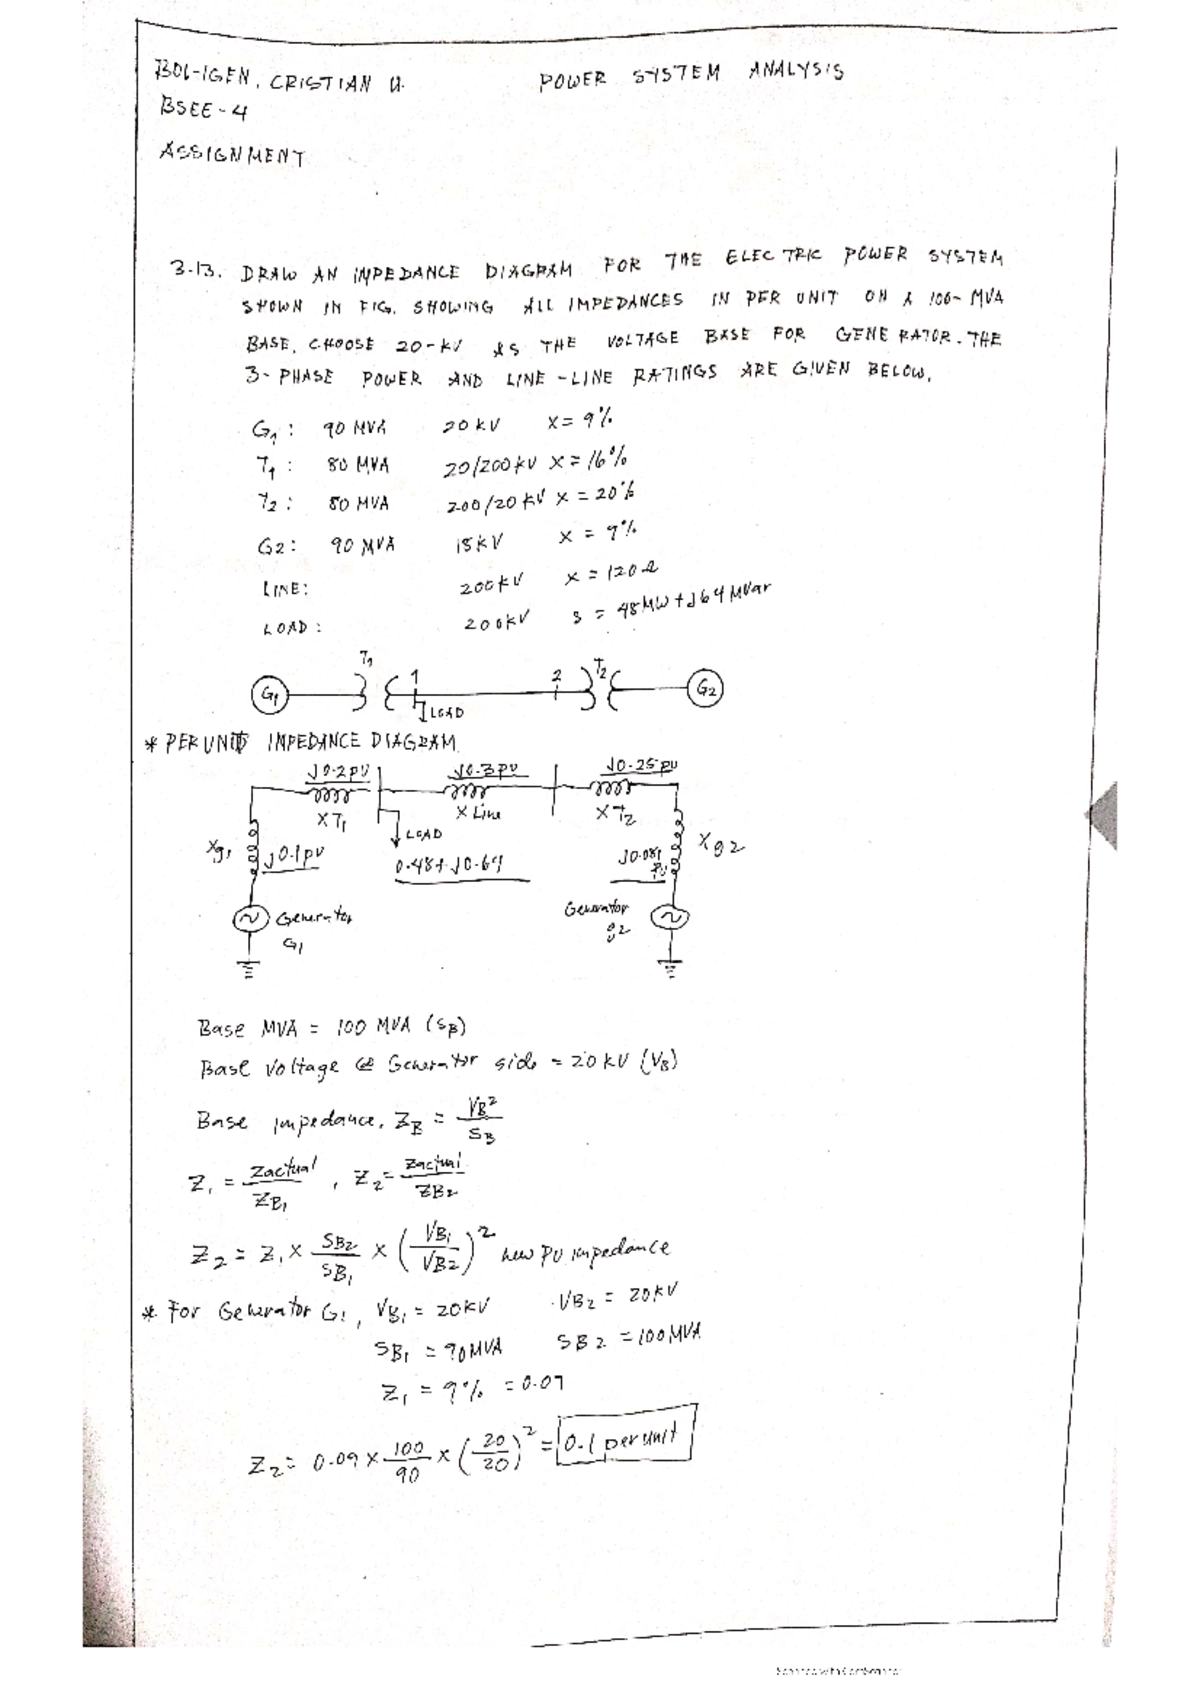 BOL-IGEN, CRISTIAN U. POWER SYSTEM ANALYSIS
BSEE-4
ASSIGNMENT
3.13. DRAW AN IMPEDANCE DIAGRAM FOR THE ELECTRIC POWER SYSTEM
SHOWN IN FIG. SHOWING ALL IMPEDANCES IN PER UNIT ON A 100-MVA
BASE. CHOOSE 20-KV AS THE VOLTAGE BASE FOR GENERATOR. THE
3-PHASE POWER AND LINE-LINE RATINGS ARE GIVEN BELOW.
G1: 90 MVA 20 KV X = 9%
T1: 80 MVA 20/200 KV X = 16%
T2: 80 MVA 200/20 KV X = 20%
G2: 90 MVA 18KV X = 9%
LINE: 200KV X = 120Ω
LOAD: 200KV S = 48MW + J64 MVar
T1 T2
G1 1 2 G2
LOAD
* PER UNIT IMPEDANCE DIAGRAM
J0.2PU J0.3PU J0.25PU
XT1 X Line XT2
LOAD
Xg1 J0.1PU 0.48 + J0.64 J0.081 PU Xg2
Generator G1
Generator g2
Base MVA = 100 MVA (SB)
Base voltage @ Generator side = 20 KV (VB)
Base impedance, ZB = VB² / SB
Z1 = Zactual / ZB1 , Z2 = Zactual / ZB2
Z2 = Z1 x SB2 / SB1 x (VB1 / VB2)² new PU impedance
* For Generator G1, VB1 = 20KV VB2 = 20KV
SB1 = 90MVA SB2 = 100MVA
Z1 = 9% = 0.09
Z2 = 0.09 x 100 / 90 x (20 / 20)² = 0.1 per unit
Scanned with CamScanner